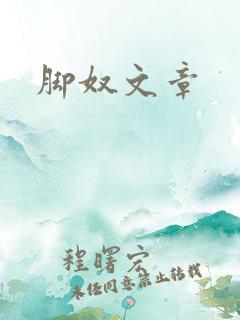 脚奴文章
程曙宏
未经同意禁止转载